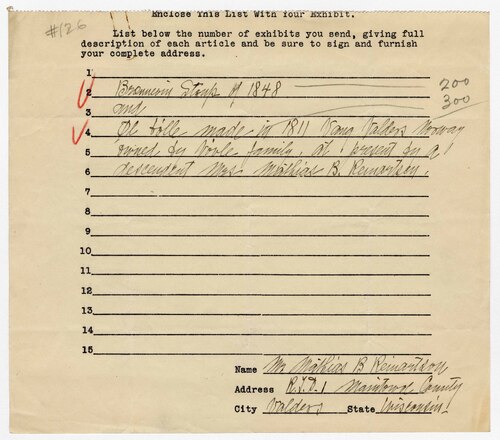 #126
Enclose This List With Your Exhibit.
List below the number of exhibits you send, giving full
description of each article and be sure to sign and furnish
your complete address.
1
2 Brennevin Stoup of 1848 200
3 and 300
4 Øl bölle made in 1811 Vang Valders Norway
5 owned by family, at present by a
6 descendent Mrs Mathias B. Reinartson.
7
8
9
10
11
12
13
14
15
Name Mr Mathias B Reinartson
Address R.F.D. 1 Manitowoc County
City Valders State Wisconsin